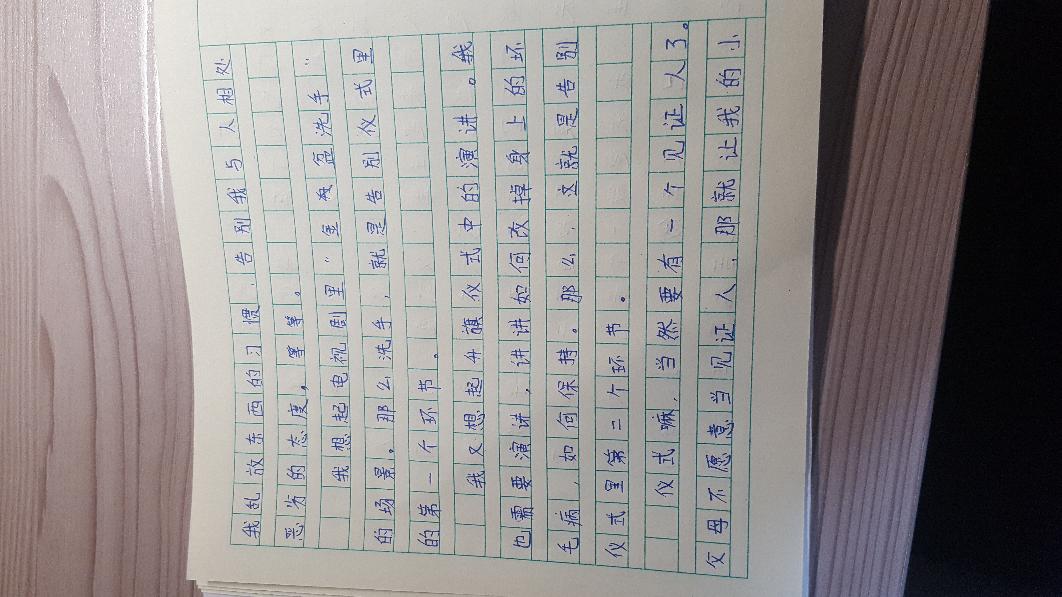 我乱放东西的习惯，告别我与人相处
恶劣的态度，等等。
我想起电视剧里“金盆洗手”
的场景。那么洗手，就是告别仪式里
的第一个环节。
我又想起升旗仪式中的演讲。我
也需要演讲，讲讲如何改掉身上的坏
毛病，如何保持。那么，这就是告别
仪式里第二个环节。
仪式嘛，当然要有一个见证人了。
父母不愿意当见证人，那就让我的小